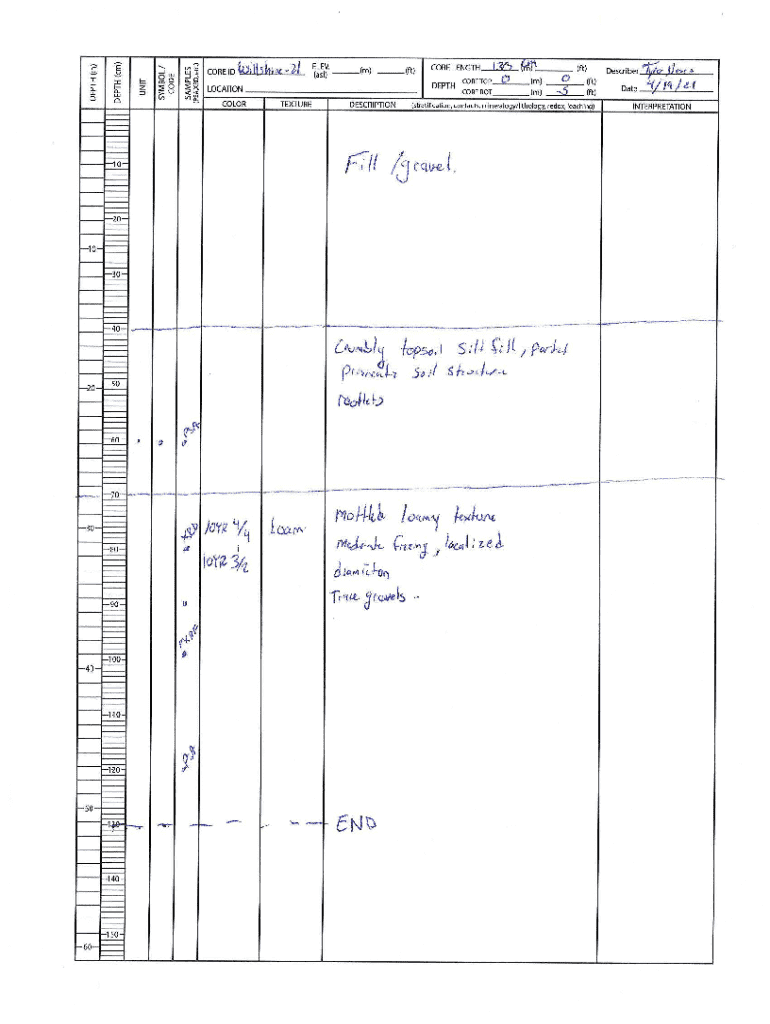 DEPTH (in)
DEPTH (cm)
UNIT
SYMBOL / CODE
SAMPLES
CORE ID Willshire-21 ELEV. (asl) (m) (ft)
LOCATION
CORE LENGTH (m) (ft)
DEPTH CORE TOP 0 (m) 0 (ft)
CORE BOT (m) 5 (ft)
Describer
Date 4/19/21
COLOR TEXTURE DESCRIPTION (stratification, contacts, mineralogy/lithology, redox, leaching) INTERPRETATION
10
Fill / gravel.
20
10
30
40
Crumbly topsoil silt fill, parted
soil structure
20
50
60
70
30
10YR 4/4 Loam Mottled loamy texture
80
10YR 3/2 moderate fizzing, localized
diamicton
90
Trace gravels
100
40
110
120
50
130 END
140
150
60